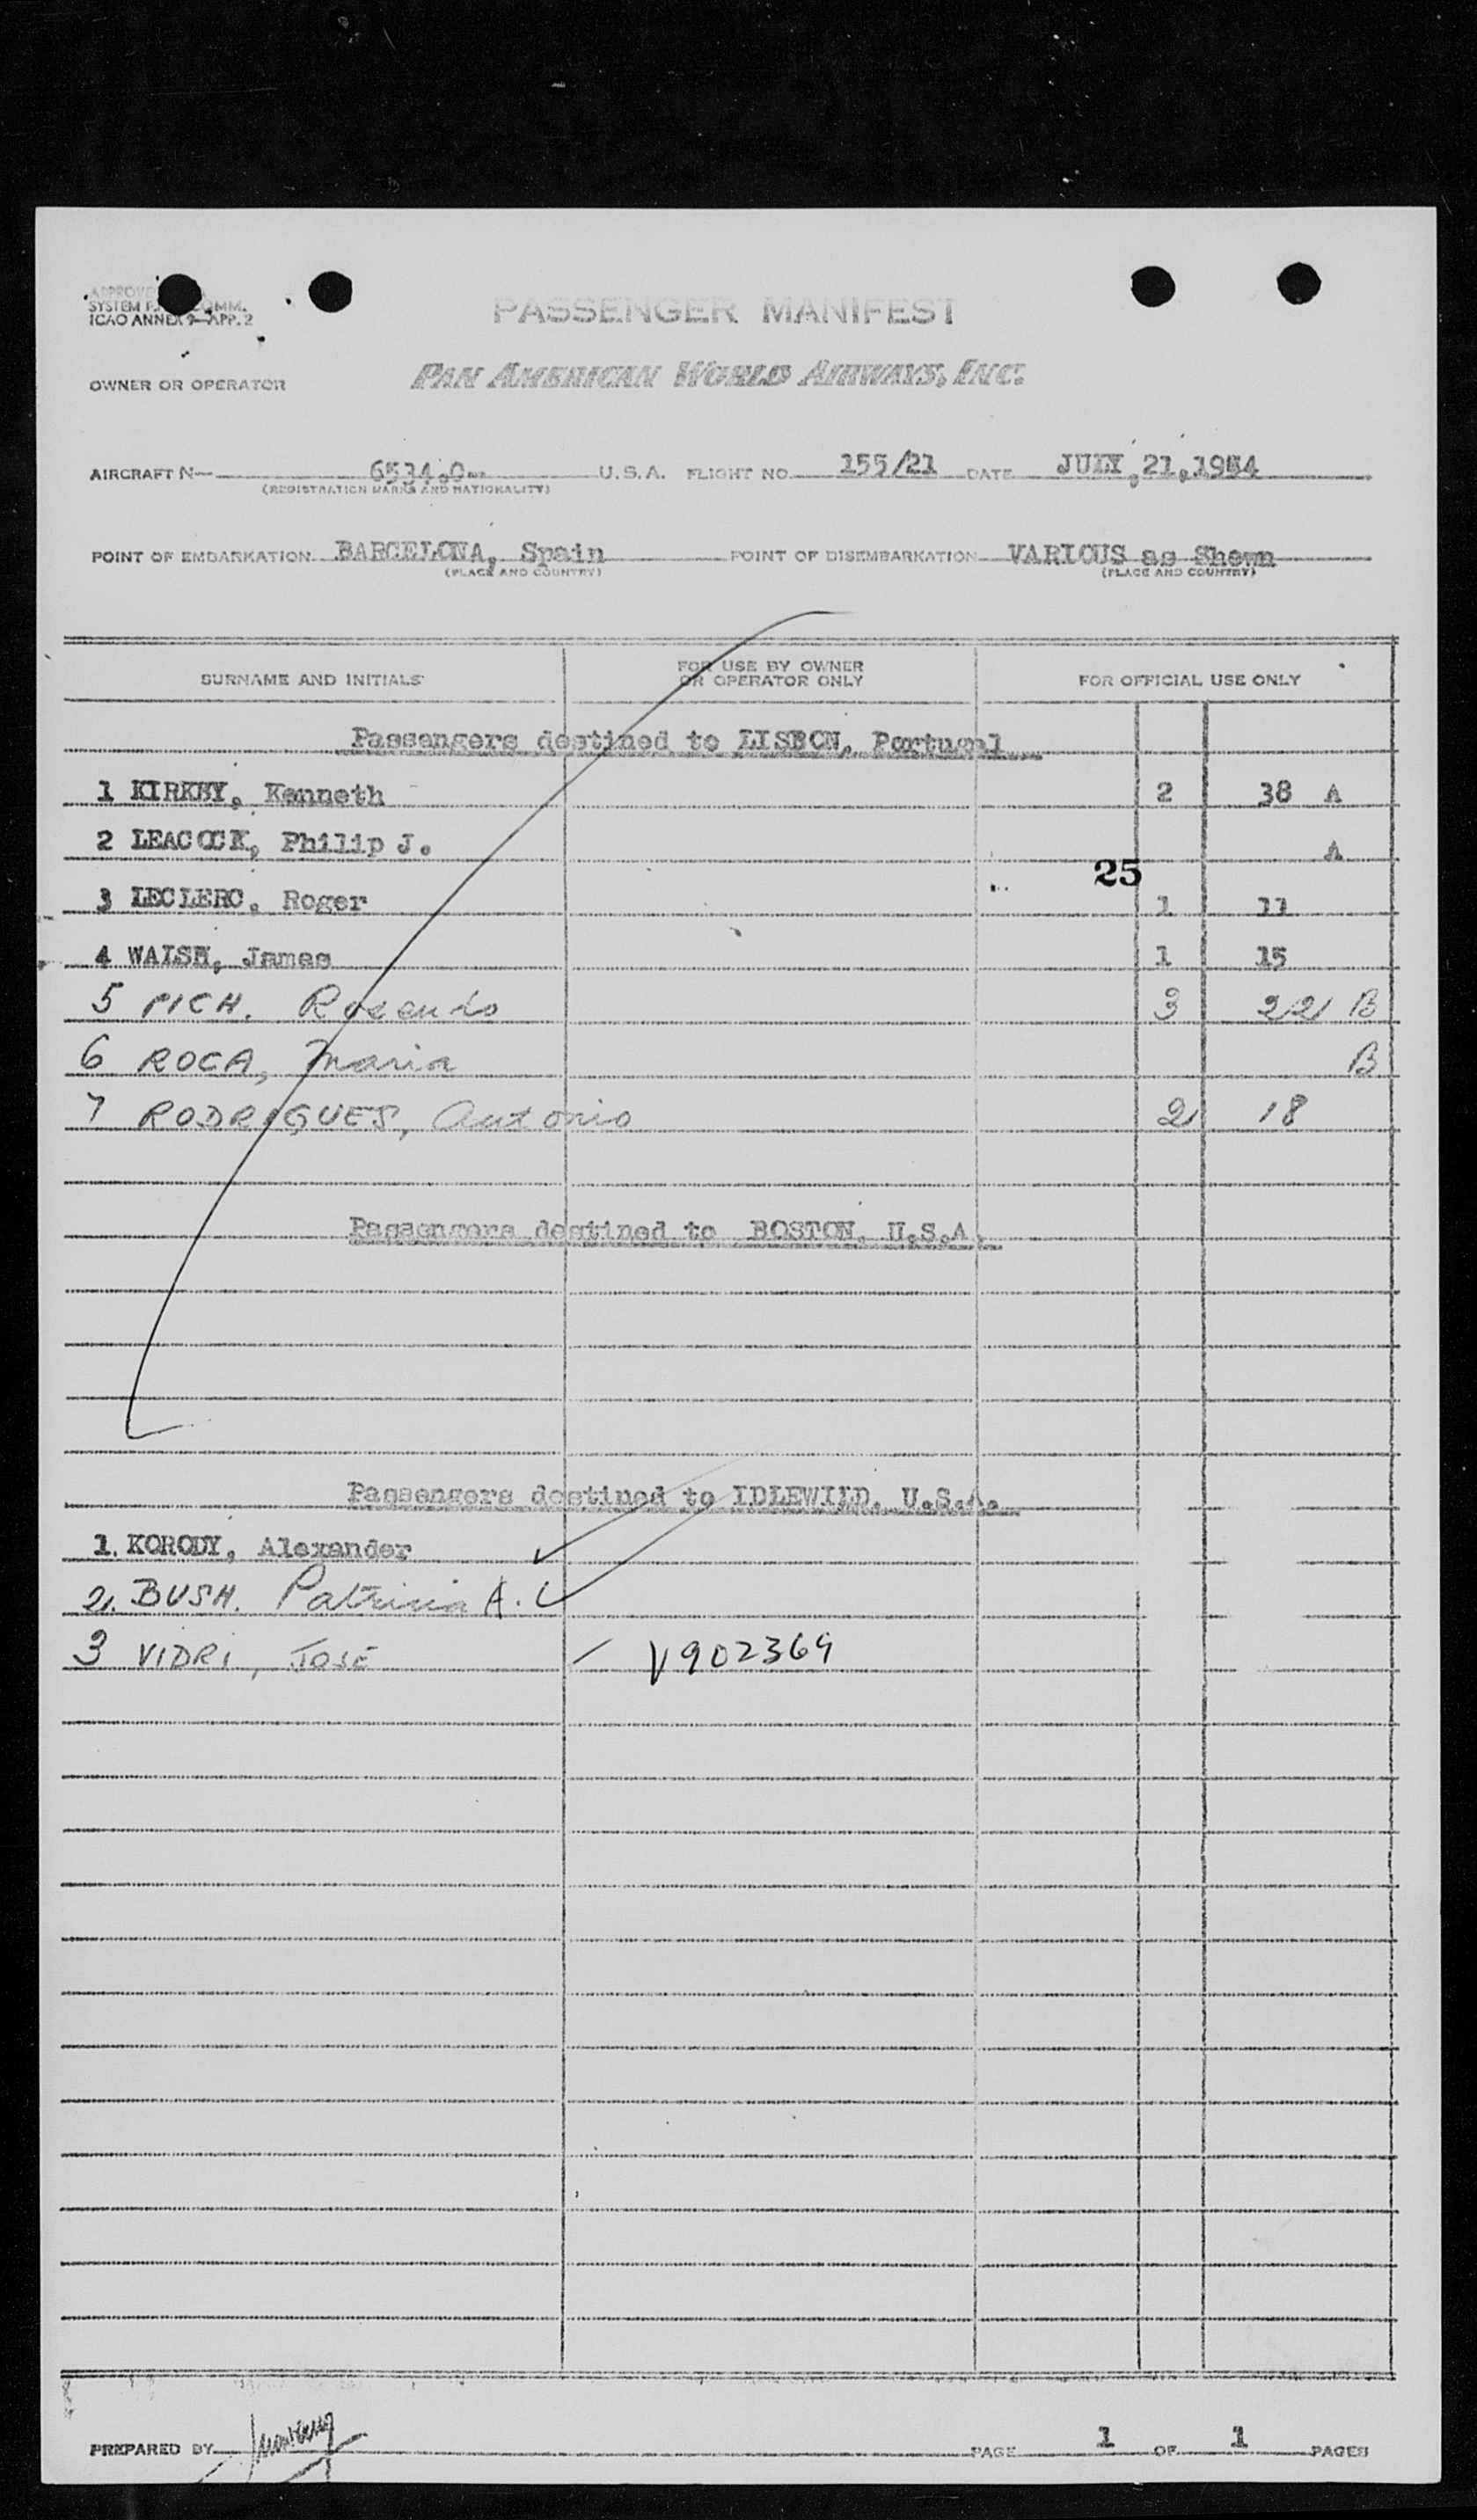 SYSTEM COMM.
ICAO ANNEX 9-APP. 2
PASSENGER MANIFEST
OWNER OR OPERATOR PAN AMERICAN WORLD AIRWAYS, INC.
AIRCRAFT N— U.S.A. FLIGHT NO. 155/21 DATE JULY, 21, 1954
(REGISTRATION MARKS AND NATIONALITY)
POINT OF EMBARKATION BARCELONA, Spain POINT OF DISEMBARKATION VARIOUS as Shown
(PLACE AND COUNTRY) (PLACE AND COUNTRY)
SURNAME AND INITIALS FOR USE BY OWNER OR OPERATOR ONLY FOR OFFICIAL USE ONLY
Passengers destined to LISBON, Portugal
1 KIRKBY, Kenneth 2 38 A
2 LEACOCK, Philip J. A
25
3 LECLERC, Roger 1 11
4 WALSH, James 1 15
5 PICH. Rosendo 3 22 B
6 ROCA, Maria B
7 RODRIGUES, Antonio 2 18
Passengers destined to BOSTON, U.S.A.
Passengers destined to IDLEWILD, U.S.A.
1. KORODY, Alexander
2. BUSH. Patricia A.
3 VIDRI, JOSE V902369
PREPARED BY PAGE 1 OF 1 PAGES